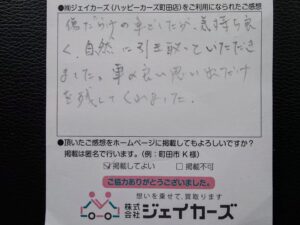 ●㈱ジェイカーズ(ハッピーカーズ町田店)をご利用になられたご感想
傷だらけの車でしたが、気持ち良
く、自然に引き取っていただき
ました。車の良い思い出だけ
を残してくれました。
●頂いたご感想をホームページに掲載してもよろしいですか?
掲載は匿名で行います。(例:町田市 K 様)
☑掲載してよい □掲載不可
ご協力ありがとうございました。
想いを乗せて、買取ります
株式会社ジェイカーズ